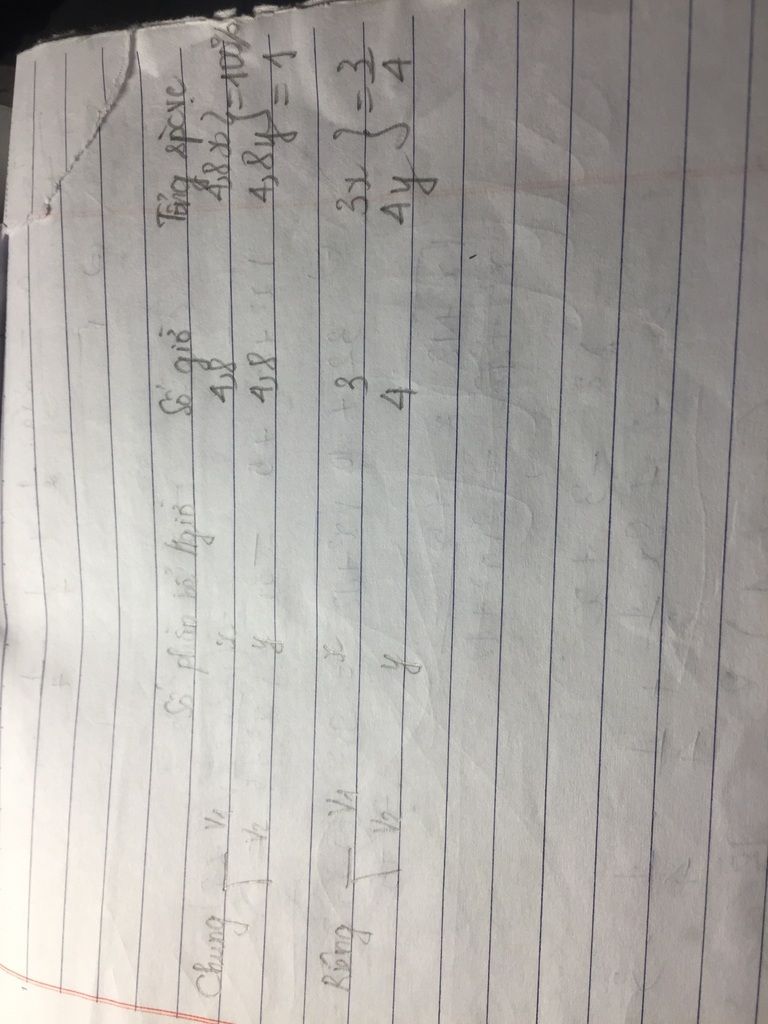 Số phần bể /1giờ Số giờ Tổng
Chung V1 x 4,8 4,8x } = 100%
V2 y 4,8 4,8y } = 1
Riêng V1 x 3 3x } = 3/4
V2 y 4 4y